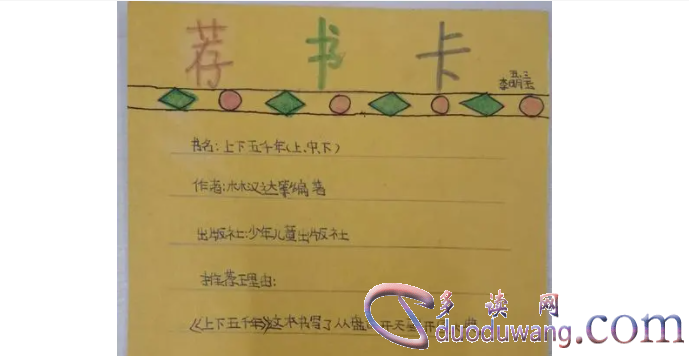 荐书卡
五.三
李明玉
书名:上下五千年(上.中.下)
作者:林汉达等编著
出版社:少年儿童出版社
推荐理由:
《上下五千年》这本书写了从盘古开天辟
多读网
duoduwang.com